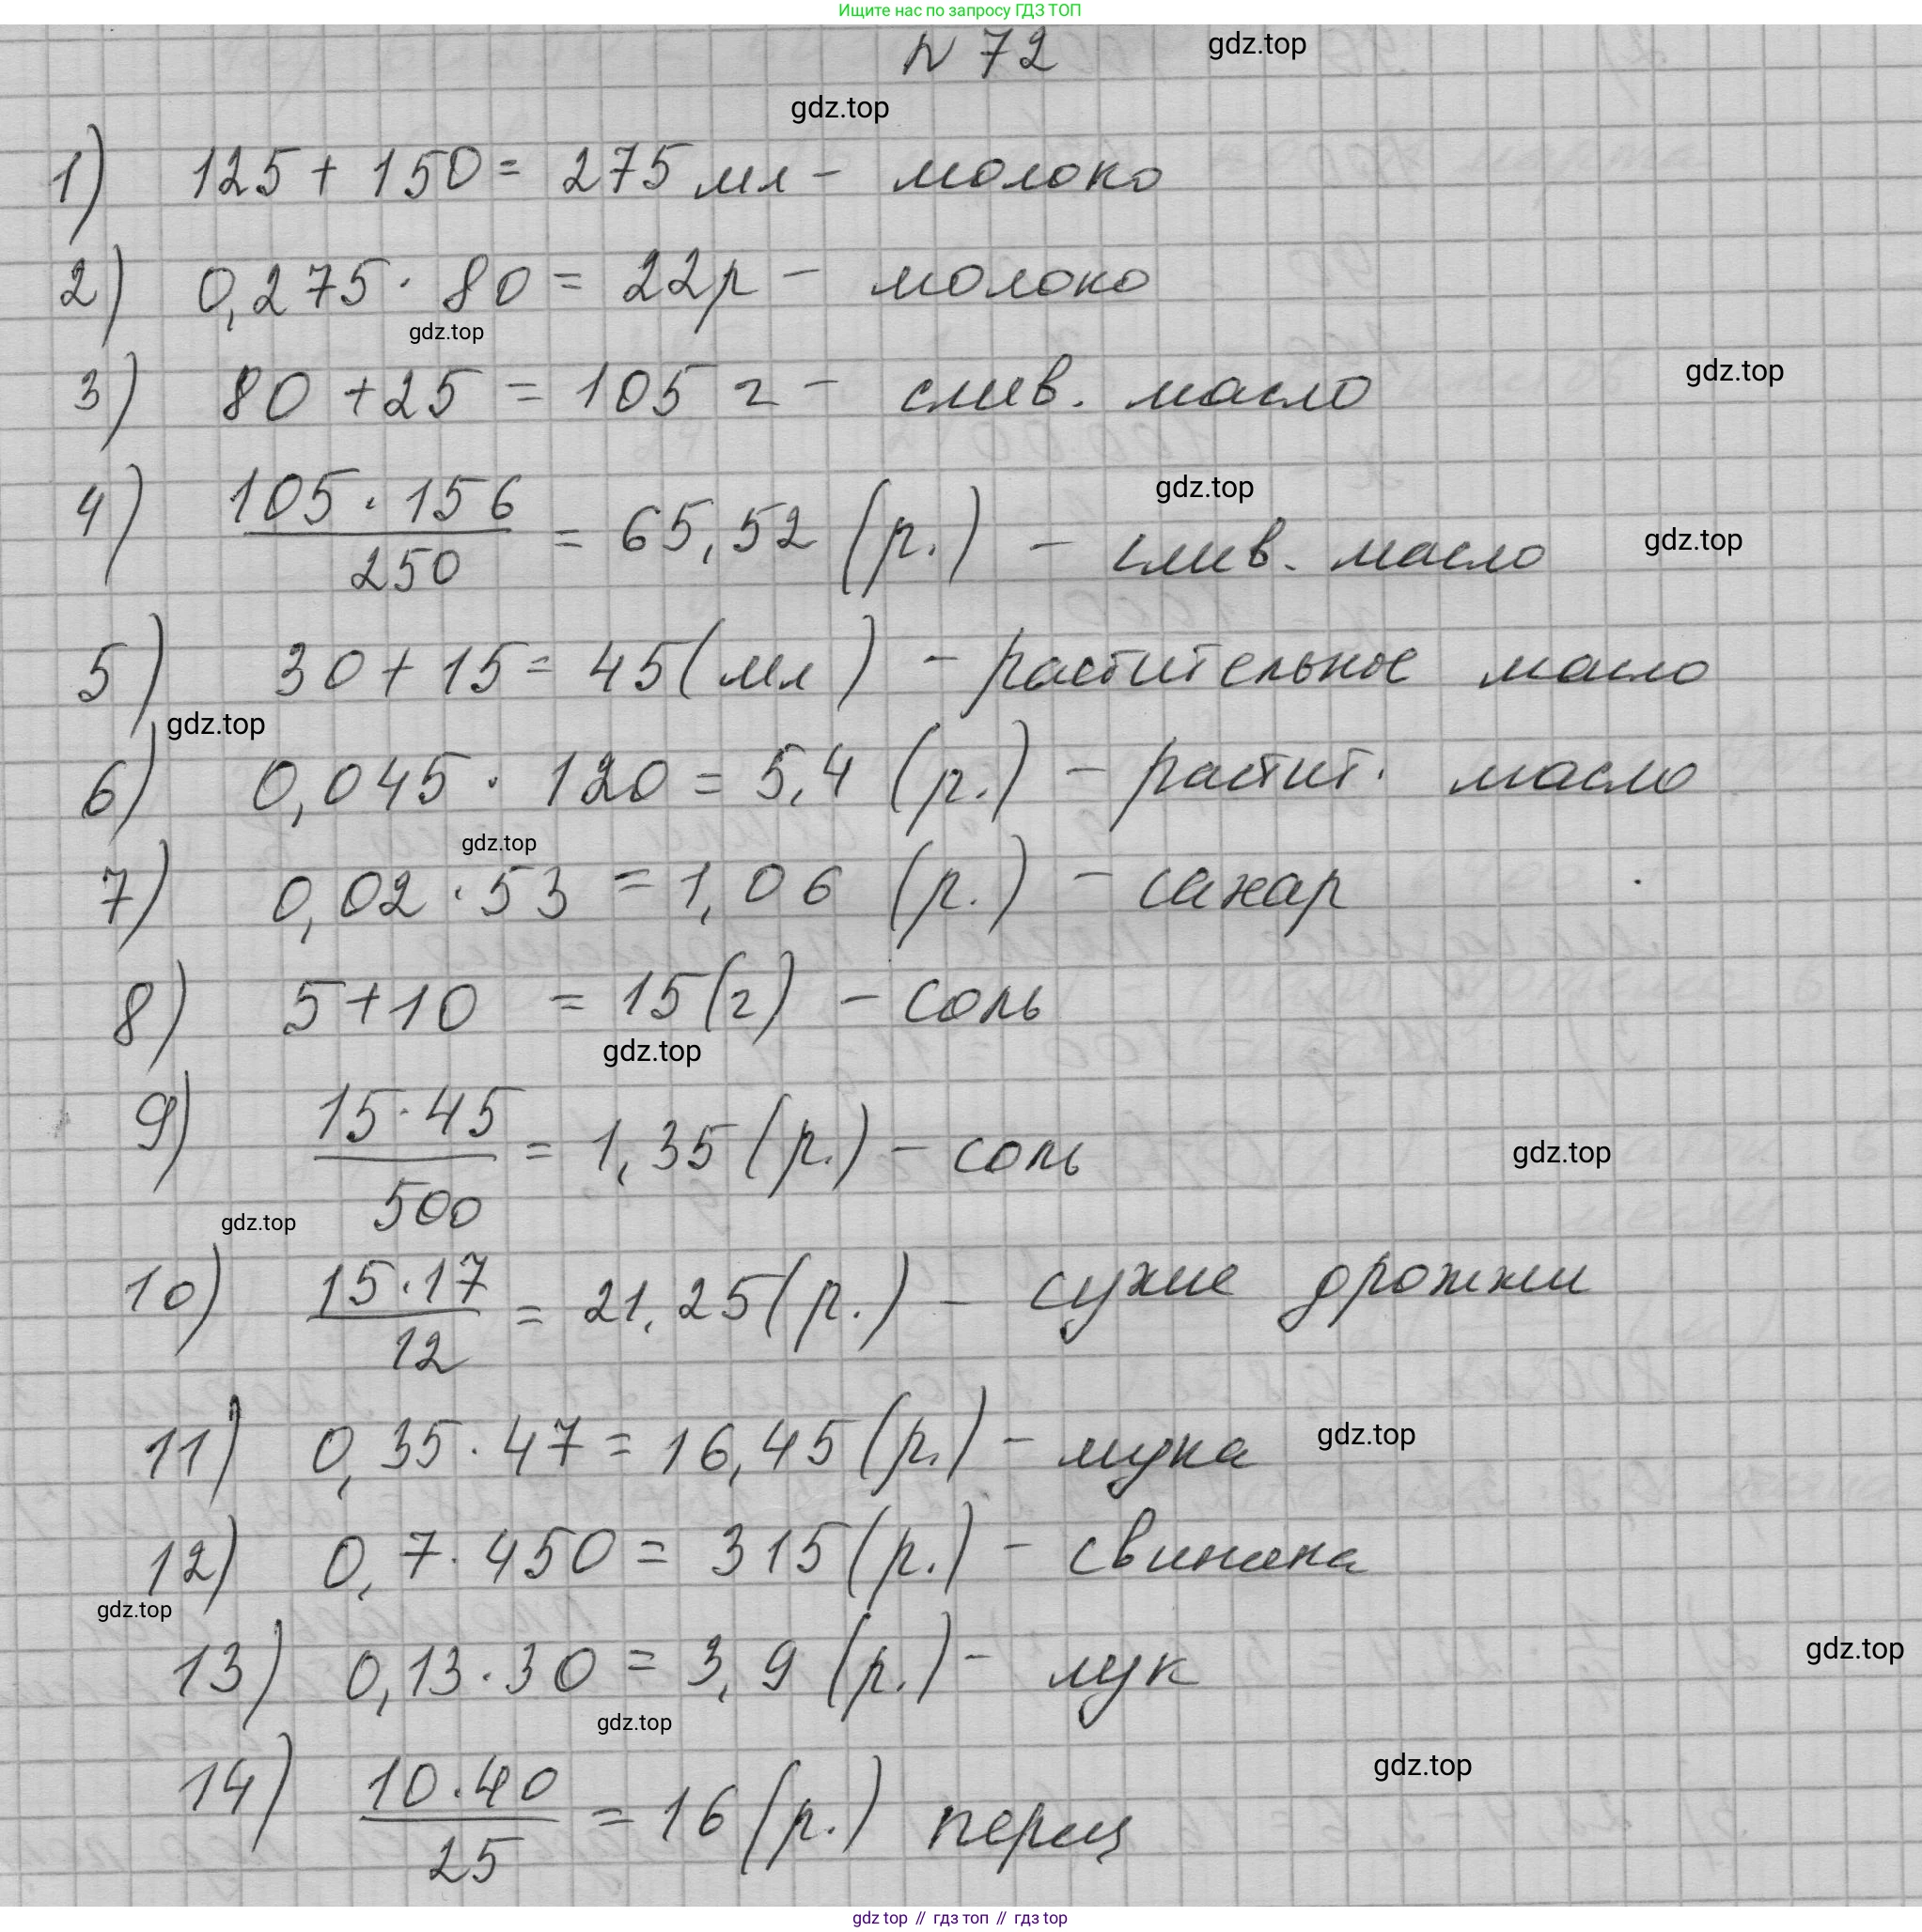 Ищите нас по запросу ГДЗ ТОП
N 72
gdz.top
gdz.top
1) 125 + 150 = 275 мл - молоко
2) 0,275 · 80 = 22р - молоко
gdz.top
3) 80 + 25 = 105 г - слив. масло
gdz.top
4) 105 · 156 / 250 = 65,52 (р.) - слив. масло
gdz.top
gdz.top
5) 30 + 15 = 45 (мл) - растительное масло
gdz.top
6) 0,045 · 120 = 5,4 (р.) - растит. масло
gdz.top
7) 0,02 · 53 = 1,06 (р.) - сахар
8) 5 + 10 = 15 (г) - соль
gdz.top
9) 15 · 45 / 500 = 1,35 (р.) - соль
gdz.top
gdz.top
10) 15 · 17 / 12 = 21,25 (р.) - сухие дрожжи
11) 0,35 · 47 = 16,45 (р.) - мука
gdz.top
12) 0,7 · 450 = 315 (р.) - свинина
gdz.top
13) 0,13 · 30 = 3,9 (р.) - лук
gdz.top
gdz.top
14) 10 · 40 / 25 = 16 (р.) перец
gdz.top
gdz top // гдз топ // гдз top